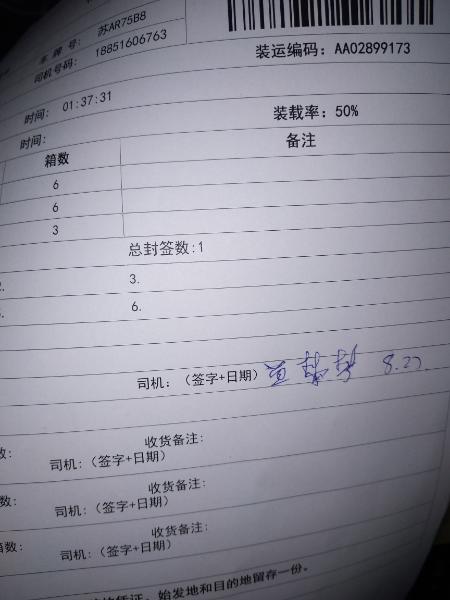 车牌号：苏AR75B8
司机号码：18851606763
装运编码：AA02899173
时间：01:37:31
时间：
装载率：50%
箱数 备注
6
6
3
总封签数:1
3.
6.
司机：（签字+日期） 8.27.
收货备注：
司机：（签字+日期）
收货备注：
司机：（签字+日期）
收货备注：
司机：（签字+日期）
凭证，始发地和目的地留存一份。